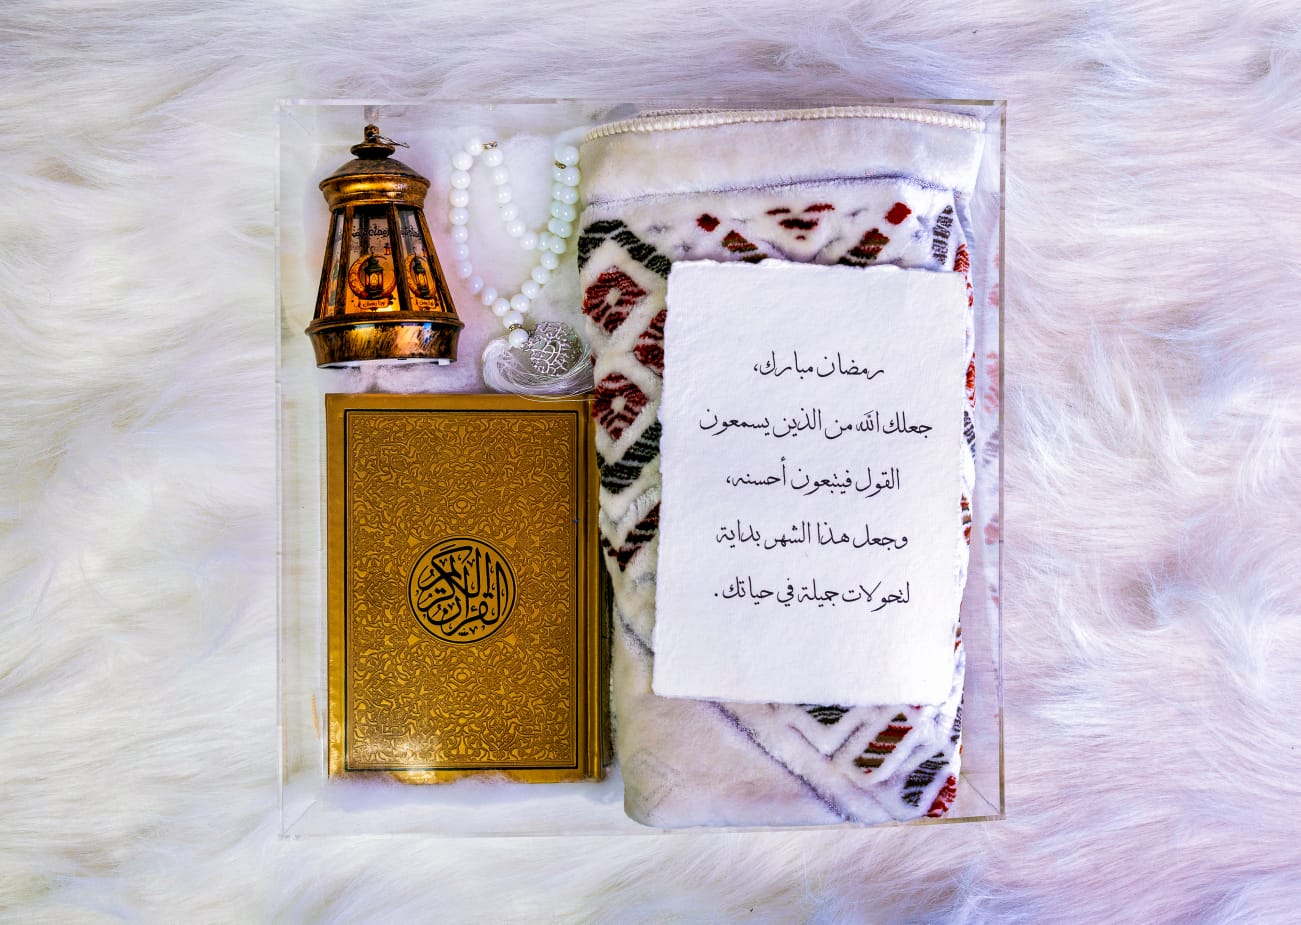 رمضان مبارك،
جعلك الله من الذين يسمعون
القول فيتبعون أحسنه،
وجعل هذا الشهر بداية
لتحولات جميلة في حياتك.
القرآن الكريم